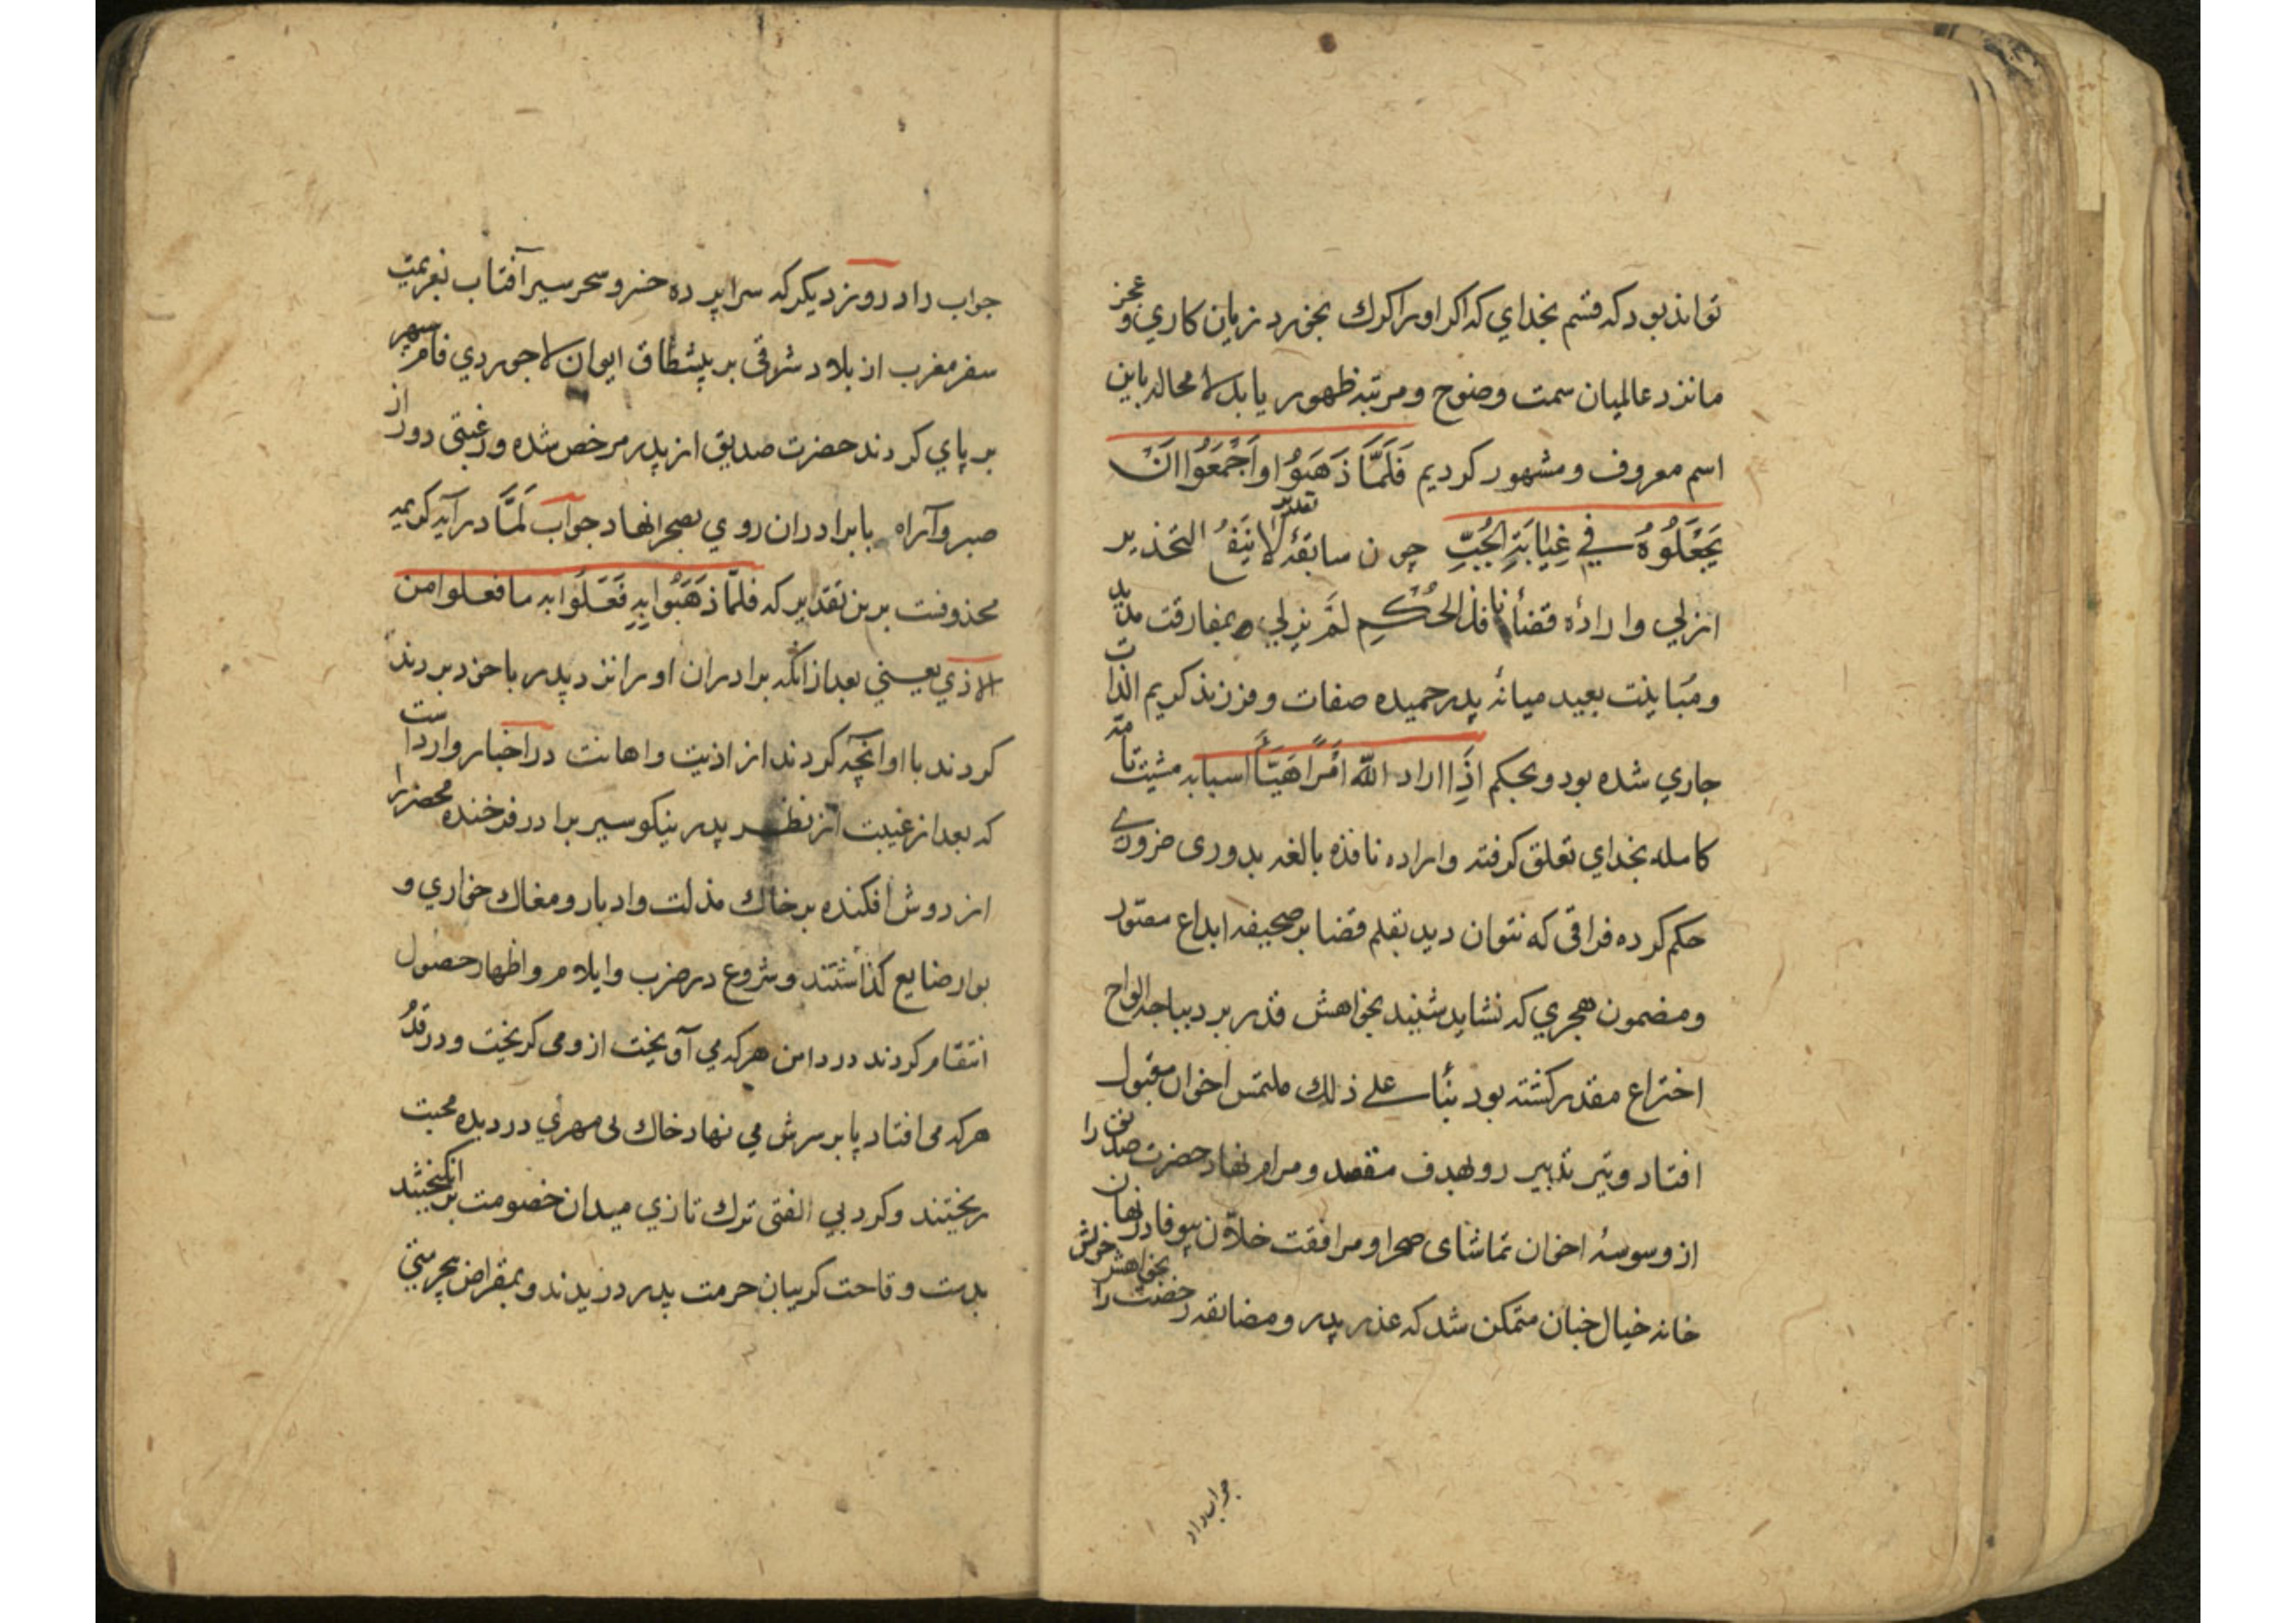 تواند بود که قسم بخدای که اکر اورا کرک بخورد زیان کاری و عجز
ما نزد عالمیان سمت وضوح و مرتبه ظهور یابد لا محاله باین
اسم معروف و مشهور کردیم فَلَمَّا ذَهَبُوا وَاَجْمَعُوا اَنْ
یَجْعَلُوُهُ فی غِیَابَتِ الجُبِّ چون سابقهٔ تقدیر لا یَنفَعُ التحذیر
ازلی و ارادهٔ قضأ نافذ الحُکم لَمْ یزلی بمفارقت مدید
و مُباینت بعید میانهٔ پدر حمیده صفات و فرزند کریم الذات
جاری شده بود و بحکم اذا اراد الله امرًا هَیَّأَ اسبابه مشیت تامه
کامله بخدای تعلق کرفته و اراده نافذه بالغه بدوری ضروری
حکم کرده فراقی که نتوان دید بقلم قضا بر صحیفه ابداع
و مضمون هجری که نشاید شنید بخواهش قدر بر دیباجه الواح
اختراع مقدر کشته بود بنأ علی ذلك ملتمس اخوان مقبول
افتاد و تیر تدبیر رو بهدف مقصد و مرام نهاد حضرت صدیق را
از وسوسهٔ اخوان تماشای صحرا و مرافقت خلان بیوفا در نهان
خانه خیال چنان متمکن شد که عذر پدر و مضایقه رخصت را بخواهش خویش
جواب داد
جواب داد روز دیکر که سراپرده خسرو سحر سیر آفتاب بعزیمت
سفر مغرب از بلاد شرقی بر پیشطاق ایوان لاجوردی فام سپهر
بر پای کردند حضرت صدیق از پدر مرخص شده و رغبتی دور از
صبر و آرام با برادران روی بصحرا نهاد جواب لَمَّا در آیه کریمه
محذوفست برین تقدیر که فلمّا ذَهَبُوا بِهِ فَعَلُوا به ما فعلوا من
الاذی یعنی بعد از آنکه برادران اورا از نزد پدر با خود بردند
کردند با او آنچه کردند از اذیت و اهانت در اخبار وارد است
که بعد از غیبت از نظر پدر نیکو سیر برادر فرخنده محضر را
از دوش افکنده بر خاك مذلت و ادبار و مغاك خواری و
بوار ضایع کذاشتند و شروع در ضرب و ایلام و اظهار حصول
انتقام کردند در دامن هر که می آویخت ازو می کریخت و در قدم
هر که می افتاد پا بر سرش می نهاد خاك بی مهری در دیده محبت
ریختند و کرد بی الفتی ترك تازی میدان خصومت بر انکیختند
بدست وقاحت کریبان حرمت پدر دریدند و بمقراض